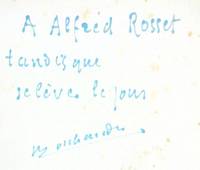 A Alfred Rosset
tandis que
se lève le jour